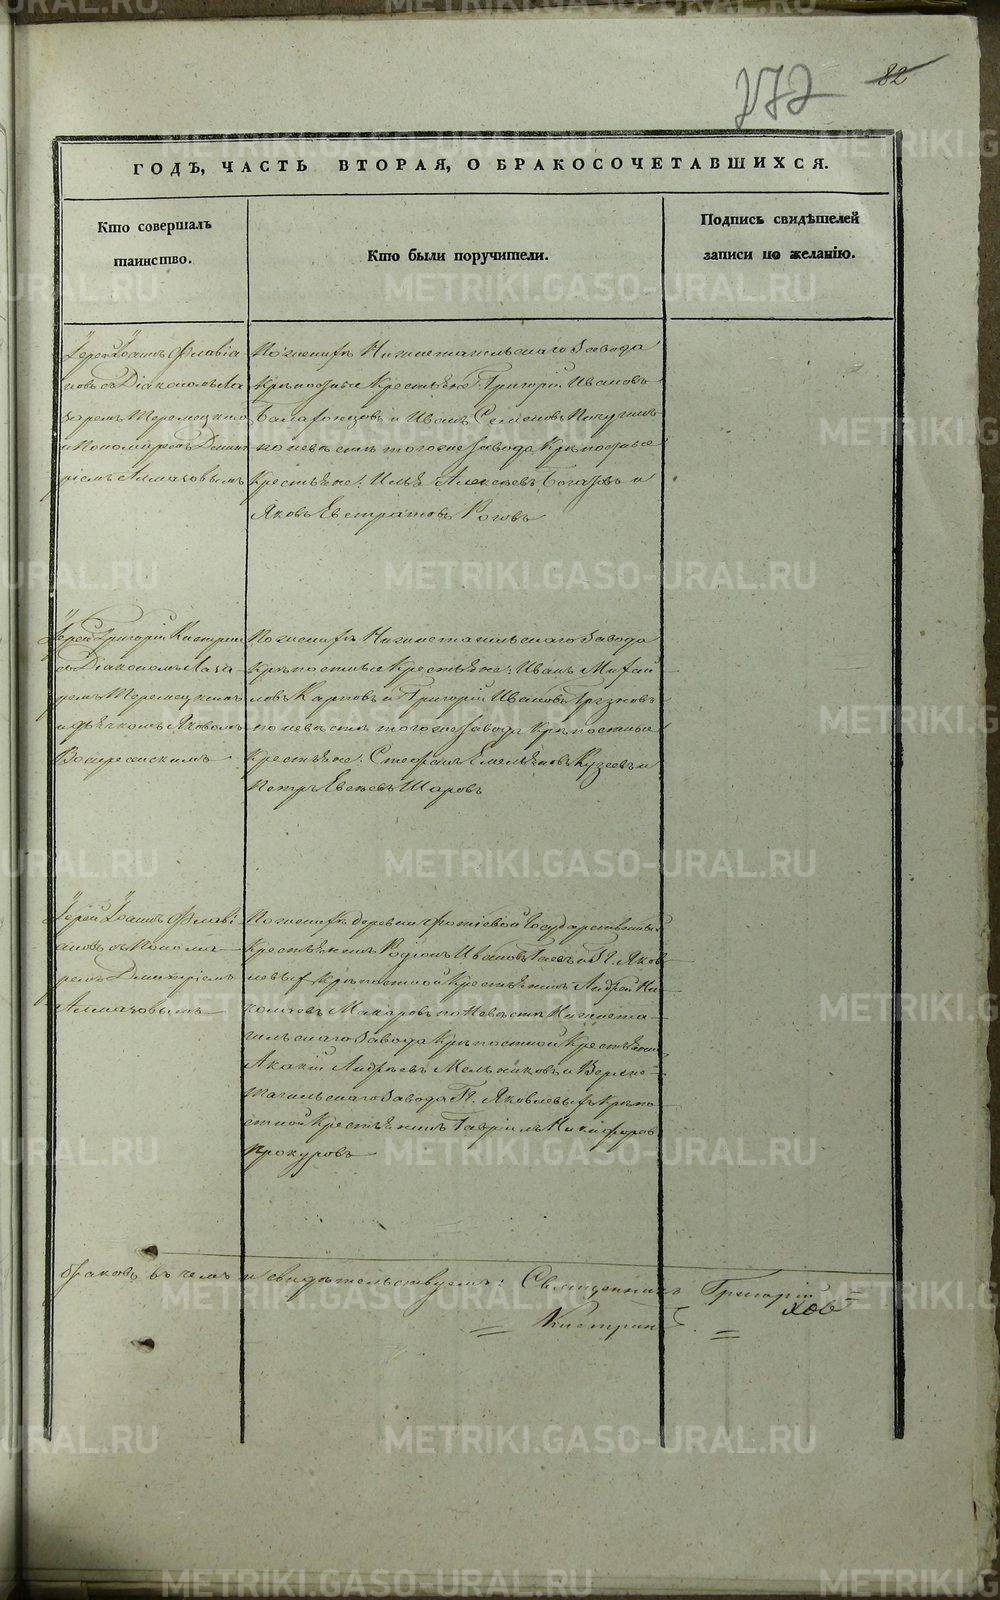 272 82
ГОДЪ, ЧАСТЬ ВТОРАЯ, О БРАКОСОЧЕТАВШИХСЯ.
Кто совершалъ
таинство.
Кто были поручители.
Подпись свидѣтелей
записи по желанію.
Іерей Іоаннъ Флавіа
новъ съ Діакономъ Ла
заремъ Теремецкимъ
и Пономаремъ Димит
ріемъ Алмазовымъ
По женихѣ Нижнетагильскаго Завода
Крѣпосные Крестьяне: Григорій Ивановъ
и Иванъ Семеновъ Пичугинъ
по невѣстѣ тогоже Завода Крѣпосные
Крестьяне: Илья Алексѣевъ и
Яковъ Евстратовъ Роговъ
Іерей Григорій
съ Діакономъ Лаза
ремъ Теремецкимъ
и дьячкомъ Яковомъ
Воскресенскимъ
По женихѣ Нижнетагильскаго Завода
Крѣпостные Крестьяне: Иванъ Михай
ловъ Карповъ и Григорій Ивановъ
по невѣстѣ тогоже Завода Крѣпостные
Крестьяне: Стефанъ Емельяновъ Кузеевъ и
Петръ Шаровъ
Іерей Іоаннъ Флаві
ановъ съ Понома
ремъ Димитріемъ
Алмазовымъ
По женихѣ деревни Государственный
Крестьянинъ Родіонъ Ивановъ и Гг. Яков
левыхъ крѣпостной Крестьянинъ Андрей Ни
колаевъ Макаровъ по Невѣстѣ Нижнета
гильскаго Завода Крѣпостной Крестьянинъ
Акакій Андрѣевъ Мельниковъ и Верхне
тагильскаго Завода Гг. Яковлевыхъ Крѣпо
стной Крестьянинъ Гавріилъ Никифоровъ
Прокуровъ
браковъ въ чемъ и свидѣтельствуемъ: Священникъ Григорій